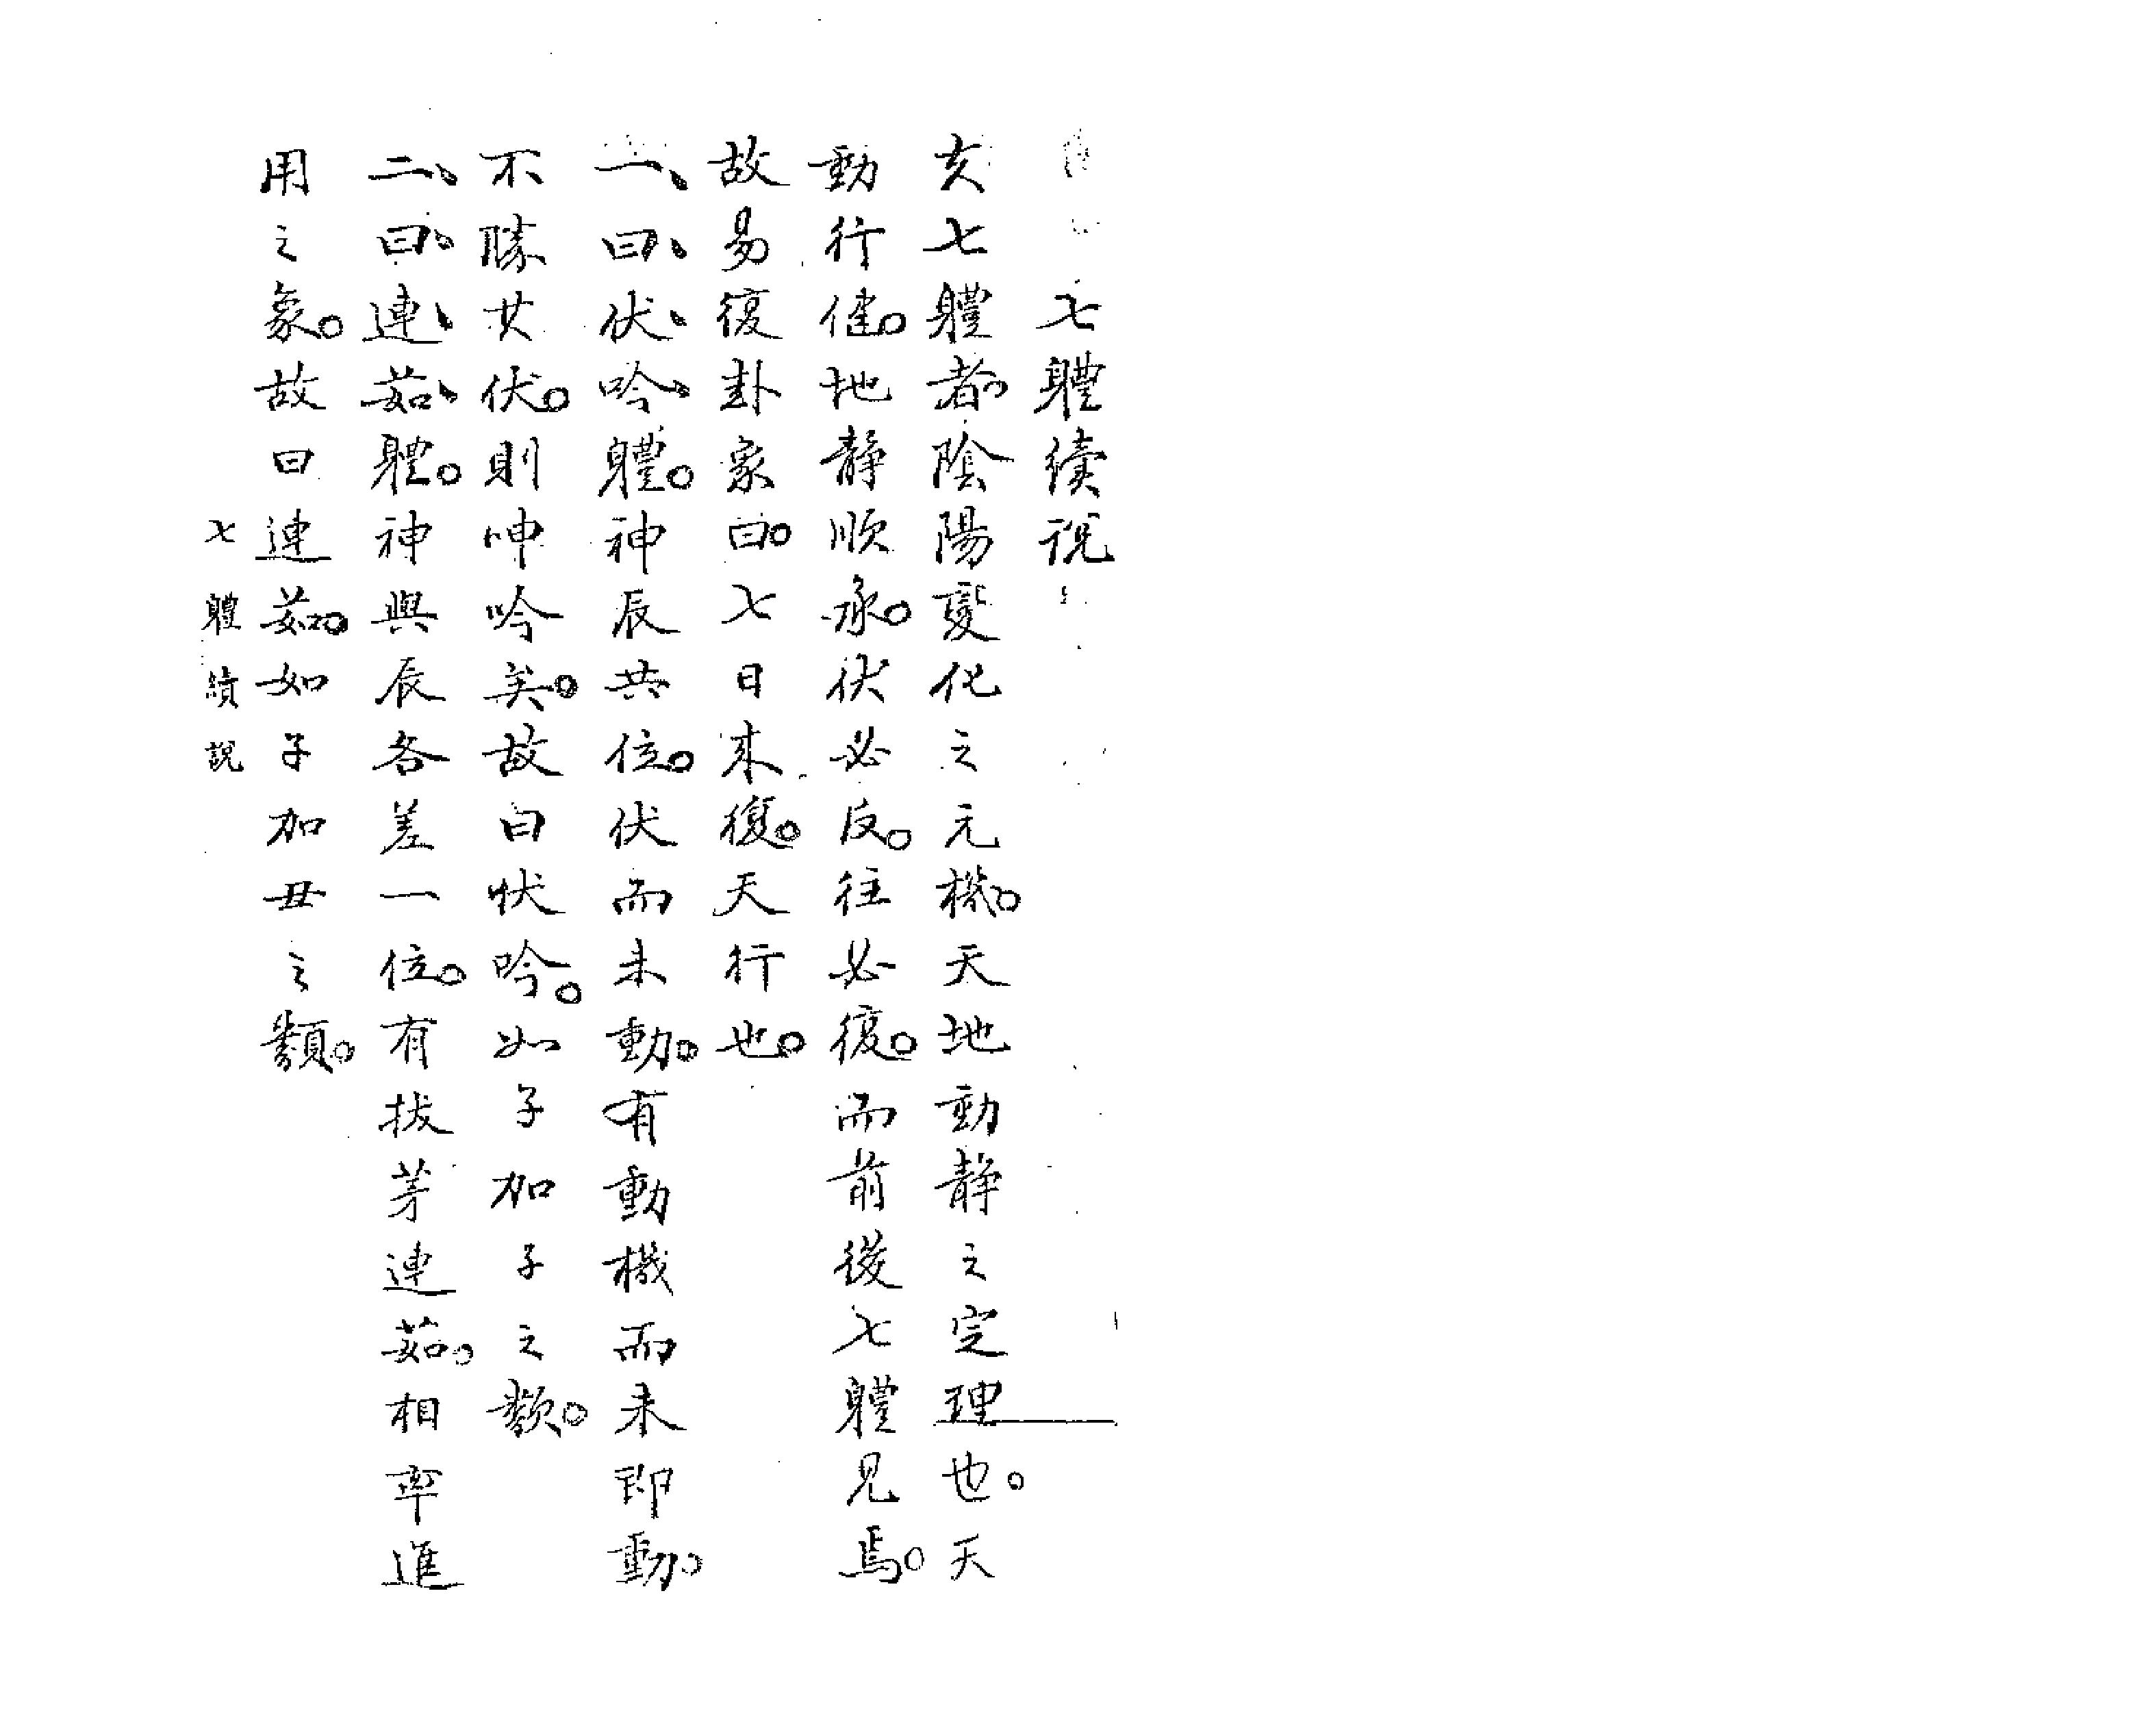 七軆續說
亥七軆者。陰陽變化之元機。天地動靜之定理也。天
動行健。地靜順承。伏必反。往必復。而前後七軆見焉。
故易復卦象曰。七日來復。天行也。
一、曰、伏、吟、軆。神辰共位。伏而未動。有動機而未即動。
不勝其伏。則呻吟矣。故曰伏吟。如子加子之類。
二、曰、連、茹、軆。神與辰各差一位。有拔茅連茹。相率進
用之象。故曰連茹。如子加丑之類。
七軆續說